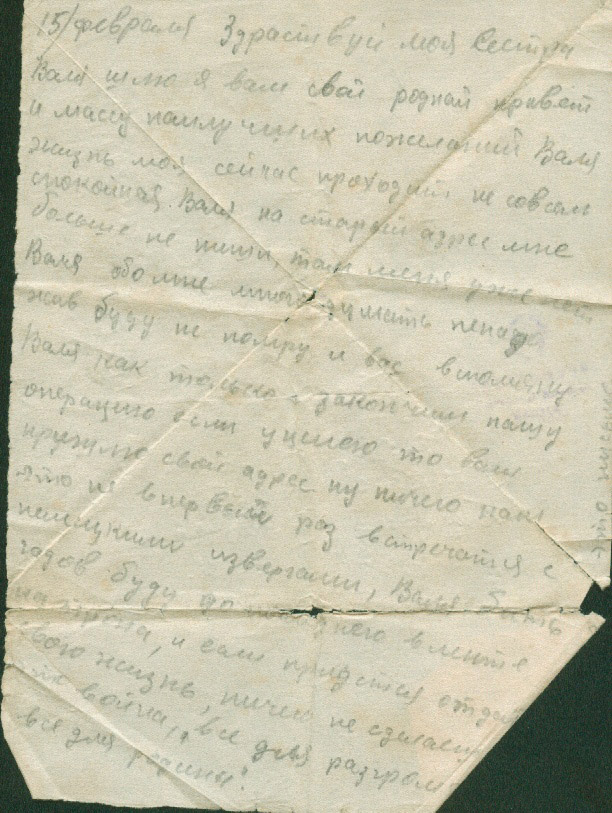 15/февраля Здраствуй моя Сестра
Валя шлю я вам свой родной привет
и массу наилучших пожеланий Валя
жизнь моя сейчас проходит не совсем
спокойная. Валя на старый адрес мне
больше не пиши, там меня уже нет
Валя обо мне много думать ненада
жив буду не помру и вас вспомяну
Валя как только закончим нашу
операцию если уцелею то вам
пришлю свой адрес ну ничего нам
это не впервый раз встречатся с
немецкими извергами, Валя бить
гадов буду до последнего в ленте
патрона, и если придется отдать
свою жизнь, ничего не сделаешь
война, "все для разгрома
все для родины".